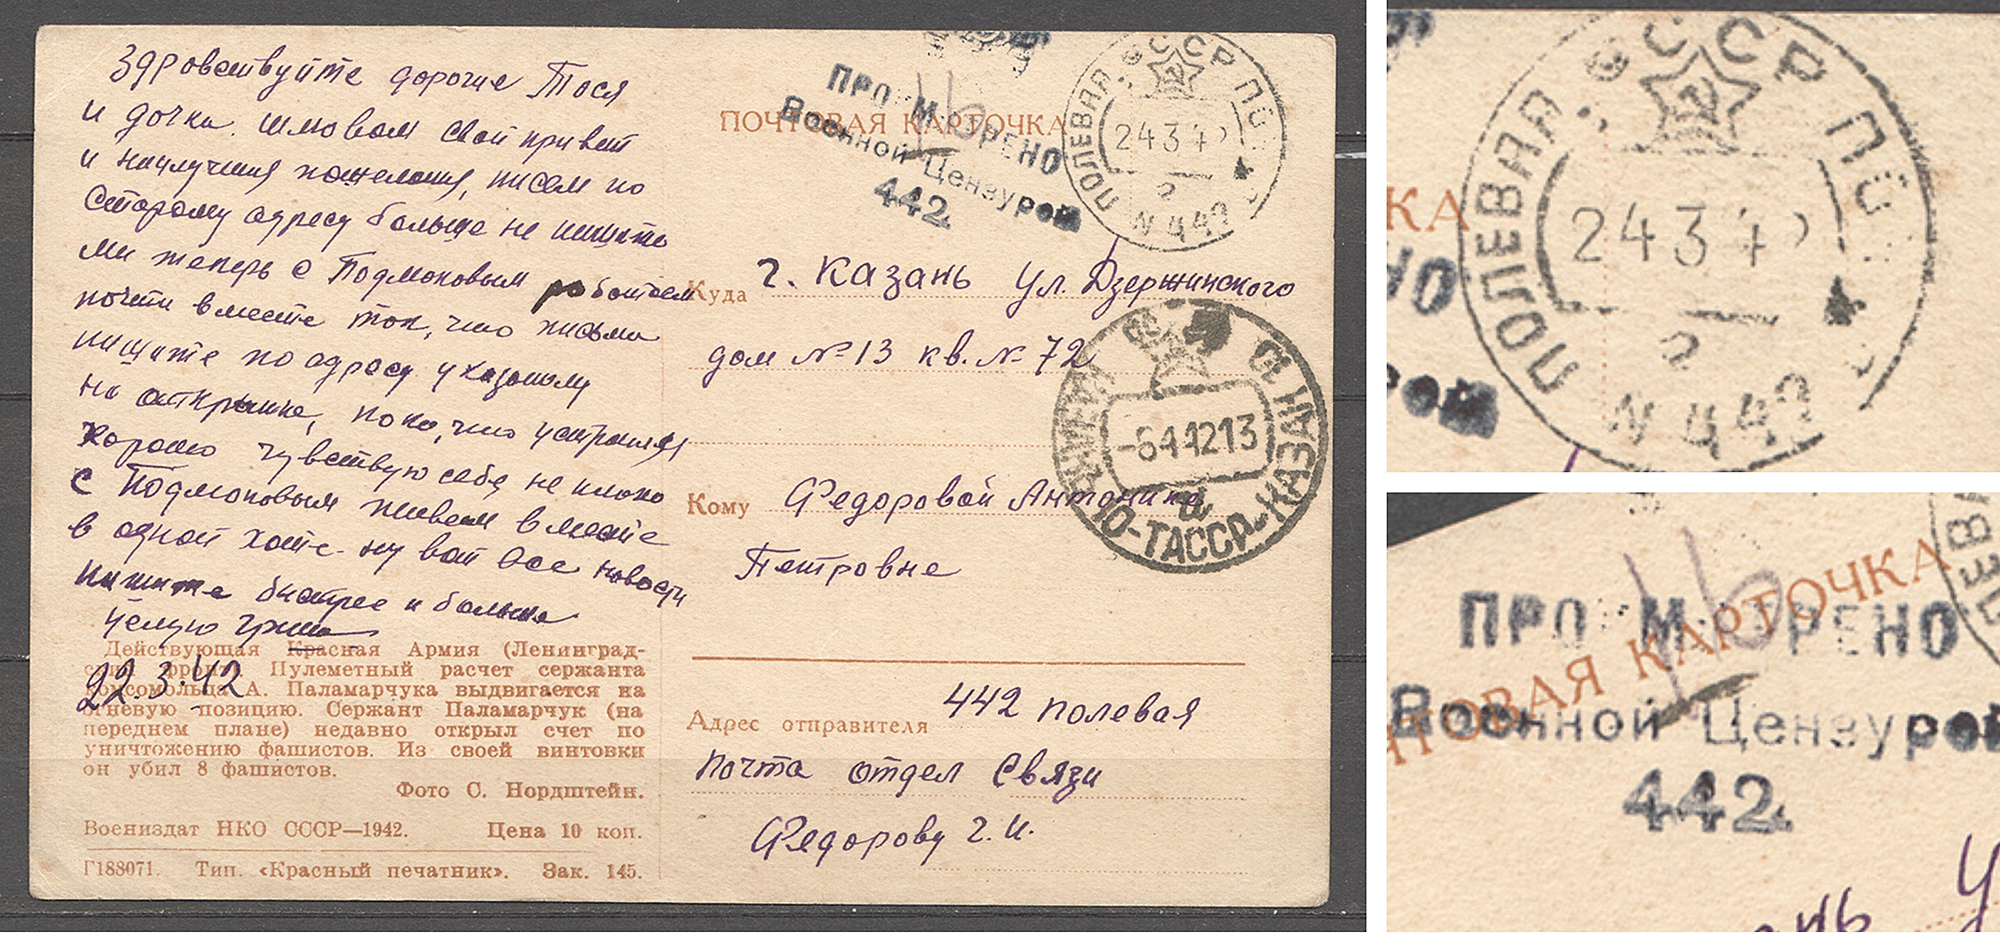 Здровствуйте дорогие Тося
и дочка. шлю вам свой привет
и наилучшия пожелания, писем по
старому адресу больше не пишите
ми теперь с Подмоковым работаем
почти вместе так, что письма
пишите по адресу указаному
на открытке, пока, что устроился
хорошо чувствую себя не плохо
с Подмоковым живем вместе
в одной хате. ну вот все новости
пишите быстрее и больше
целую Гриша
22.3.42
Действующая Красная Армия (Ленинград-
ский фронт). Пулеметный расчет сержанта
комсомольца А. Паламарчука выдвигается на
огневую позицию. Сержант Паламарчук (на
переднем плане) недавно открыл счет по
уничтожению фашистов. Из своей винтовки
он убил 8 фашистов.
Фото С. Нордштейн.
Воениздат НКО СССР—1942. Цена 10 коп.
Г188071. Тип. «Красный печатник». Зак. 145.
ПОЧТОВАЯ КАРТОЧКА
ПРО М ТРЕНО
Военной Цензурой
442
СССР
ПОЛЕВАЯ ПО
24 3 4
N 442
Куда г. Казань ул. Дзержинского
дом № 13 кв. № 72
-6 4 42 13
ТАССР-КАЗАН
Кому Федоровой Антонине
Петровне
Адрес отправителя 442 полевая
почта отдел Связи
Федорову Г. И.
СССР
ПОЛЕВАЯ ПО
24 3 4
2
N 442
КА
НО
рой
ПРО М ТРЕНО
ЧТОВАЯ КАРТОЧКА
Военной Цензурой
442
ПОЛЕВ
ань У